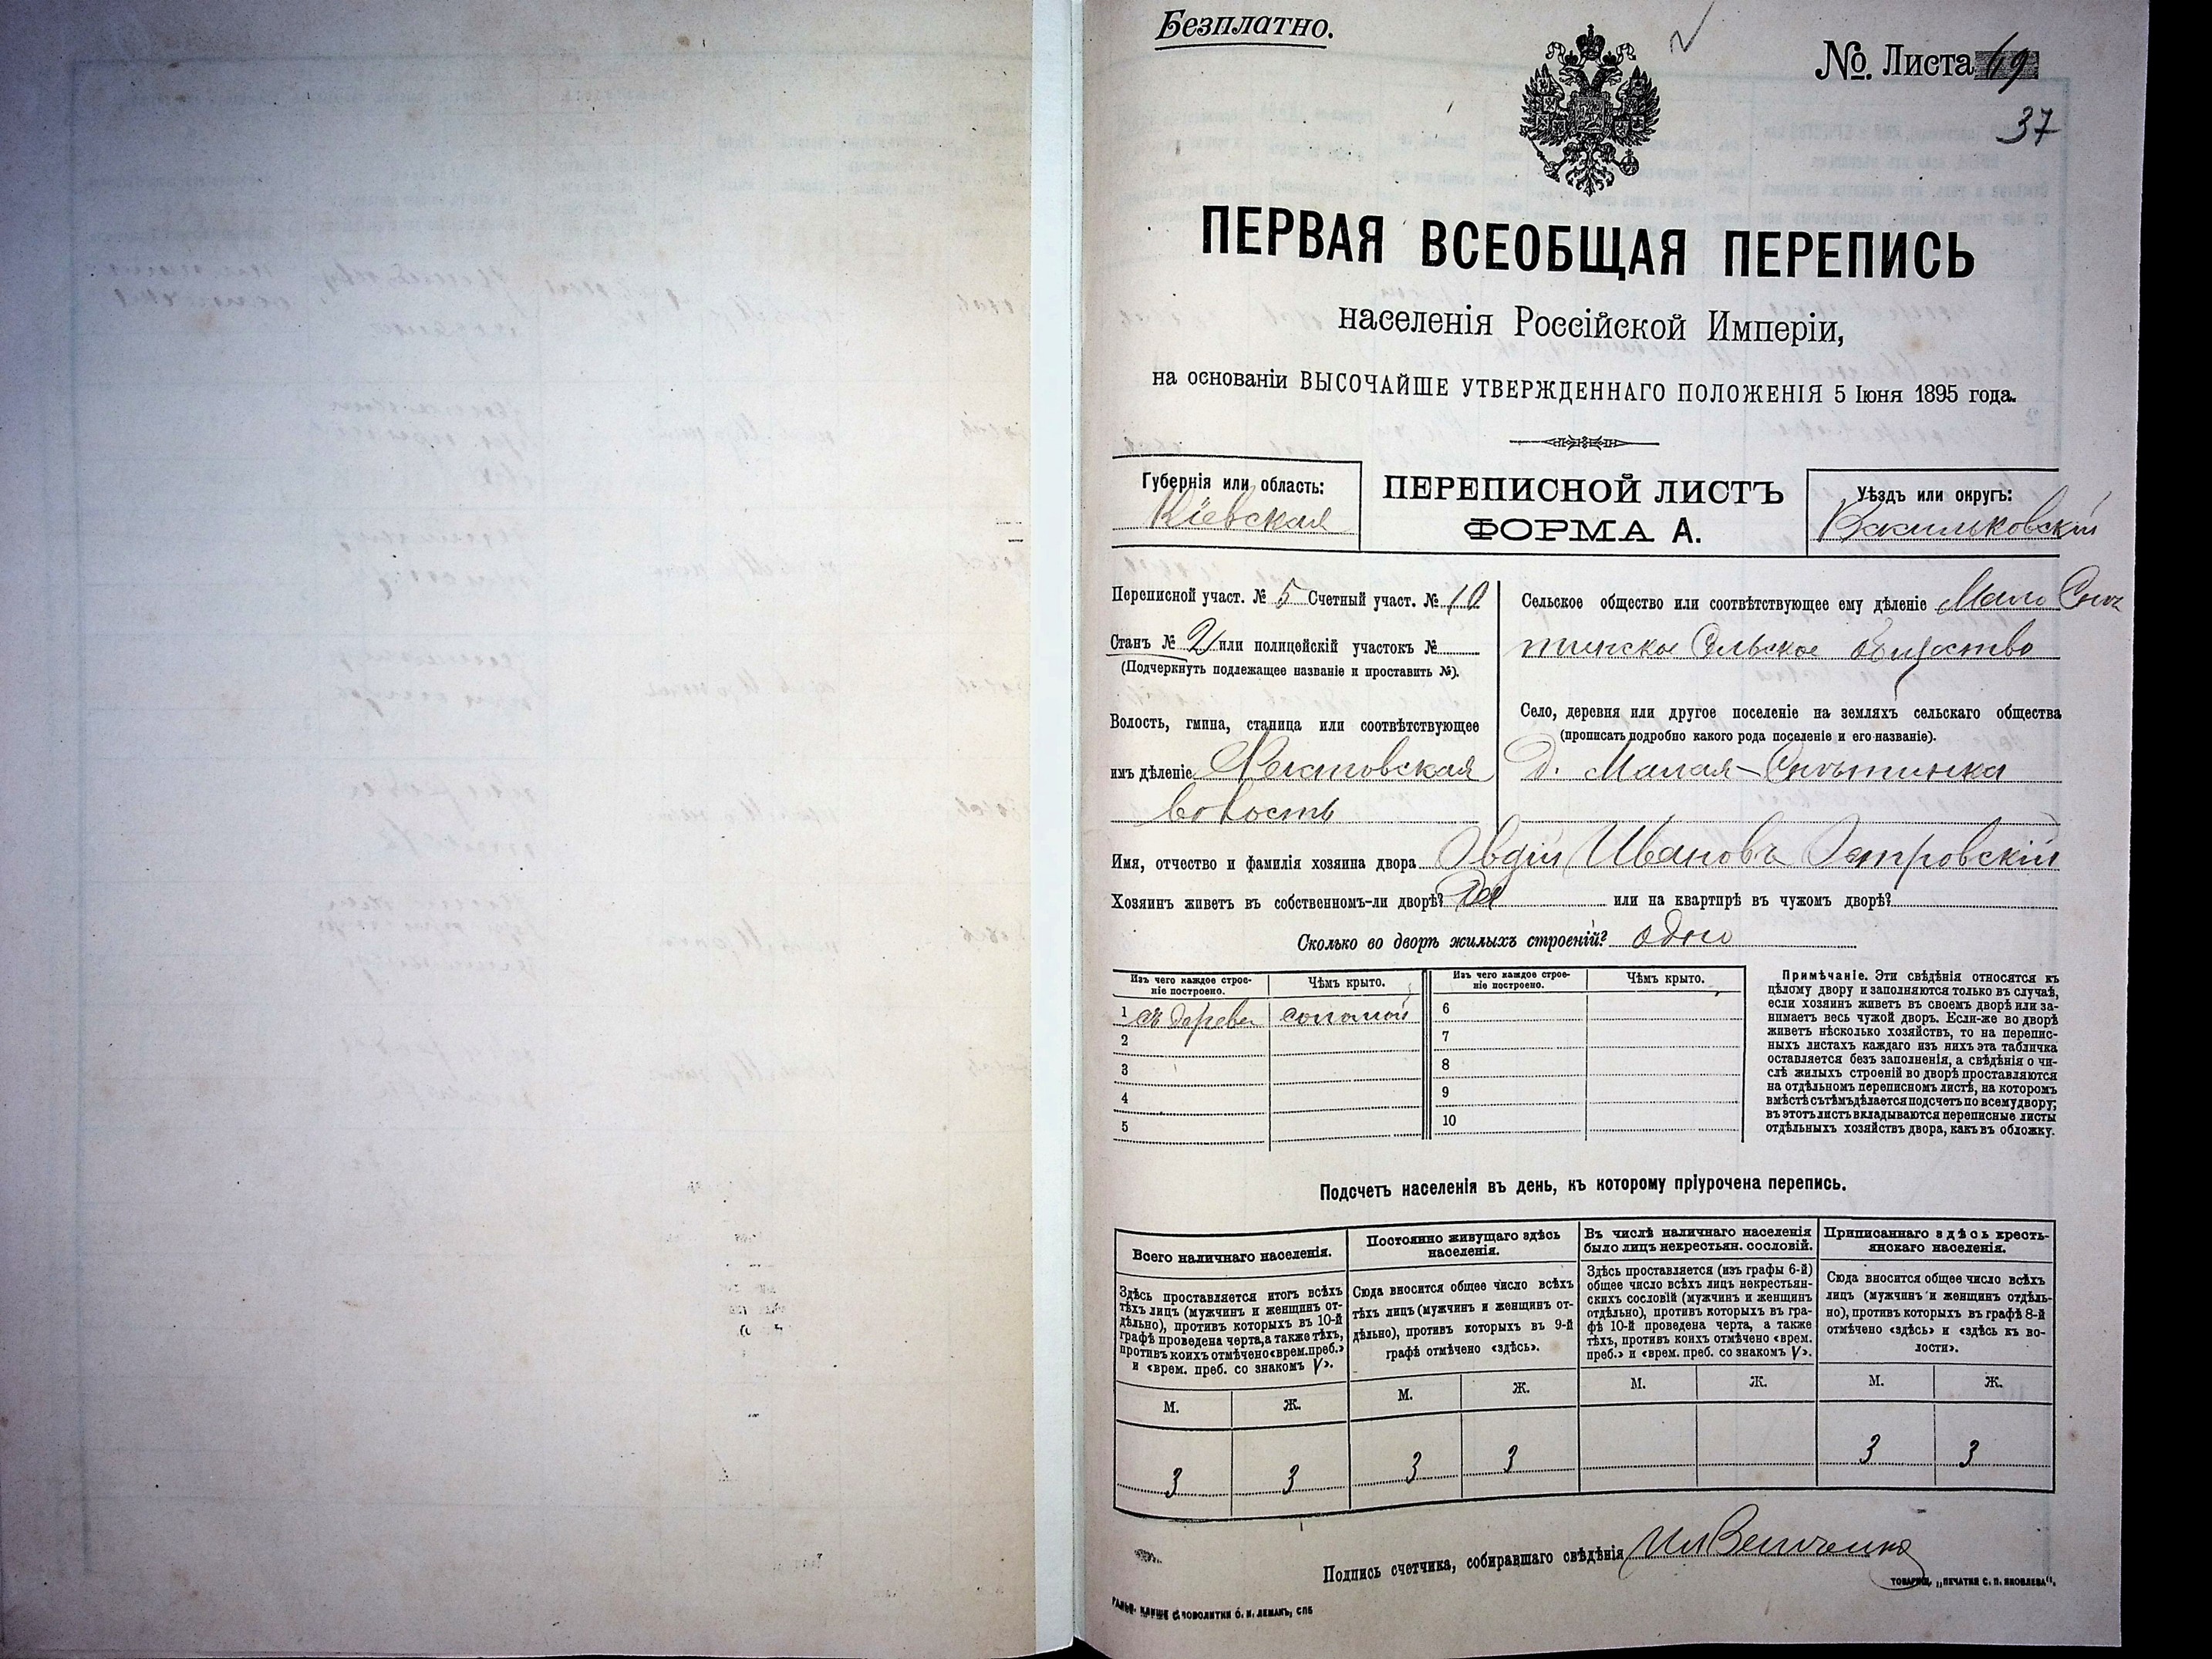 Безплатно.
№ Листа 69
37
ПЕРВАЯ ВСЕОБЩАЯ ПЕРЕПИСЬ
населенія Россійской Имперіи,
на основаніи ВЫСОЧАЙШЕ УТВЕРЖДЕННАГО ПОЛОЖЕНІЯ 5 Іюня 1895 года.
Губернія или область:
Кіевская
ПЕРЕПИСНОЙ ЛИСТЪ
ФОРМА А.
Уѣздъ или округъ:
Васильковскій
Переписной участ. № 5 Счетный участ. № 10
Станъ № 2 или полицейскій участокъ №
(Подчеркнуть подлежащее названіе и проставить №).
Волость, гмина, станица или соотвѣтствующее
имъ дѣленіе
волость
Сельское общество или соотвѣтствующее ему дѣленіе Мало Снѣ
тинское Сельское общество
Село, деревня или другое поселеніе на земляхъ сельскаго общества
(прописать подробно какого рода поселеніе и его названіе).
д. Малая-Снѣтинка
Имя, отчество и фамилія хозяина двора Овдій Ивановъ Петровскій
Хозяинъ живетъ въ собственномъ-ли дворѣ? Да или на квартирѣ въ чужомъ дворѣ?
Сколько во дворѣ жилыхъ строеній? одно
Изъ чего каждое строе-
ніе построено.
Чѣмъ крыто.
Изъ чего каждое строе-
ніе построено.
Чѣмъ крыто.
1 съ дерева соломой
2
3
4
5
6
7
8
9
10
Примѣчаніе. Эти свѣдѣнія относятся къ
цѣлому двору и заполняются только въ случаѣ,
если хозяинъ живетъ въ своемъ дворѣ или за-
нимаетъ весь чужой дворъ. Если-же во дворѣ
живетъ нѣсколько хозяйствъ, то на перепис-
ныхъ листахъ каждаго изъ нихъ эта табличка
оставляется безъ заполненія, а свѣдѣнія о чи-
слѣ жилыхъ строеній во дворѣ проставляются
на отдѣльномъ переписномъ листѣ, на которомъ
вмѣстѣ съ тѣмъ дѣлается подсчетъ по всему двору;
въ этотъ листъ вкладываются переписные листы
отдѣльныхъ хозяйствъ двора, какъ въ обложку.
Подсчетъ населенія въ день, къ которому пріурочена перепись.
Всего наличнаго населенія.
Здѣсь проставляется итогъ всѣхъ
тѣхъ лицъ (мужчинъ и женщинъ от-
дѣльно), противъ которыхъ въ 10-й
графѣ проведена черта, а также тѣхъ,
противъ коихъ отмѣчено «врем. преб.»
и «врем. преб. со знакомъ V».
М. Ж.
3 3
Постоянно живущаго здѣсь
населенія.
Сюда вносится общее число всѣхъ
тѣхъ лицъ (мужчинъ и женщинъ от-
дѣльно), противъ которыхъ въ 9-й
графѣ отмѣчено «здѣсь».
М. Ж.
3 3
Въ числѣ наличнаго населенія
было лицъ некрестьян. сословій.
Здѣсь проставляется (изъ графы 6-й)
общее число всѣхъ лицъ некрестьян-
скихъ сословій (мужчинъ и женщинъ
отдѣльно), противъ которыхъ въ гра-
фѣ 10-й проведена черта, а также
тѣхъ, противъ коихъ отмѣчено «врем.
преб.» и «врем. преб. со знакомъ V».
М. Ж.
Приписаннаго здѣсь кресть-
янскаго населенія.
Сюда вносится общее число всѣхъ
лицъ (мужчинъ и женщинъ отдѣль-
но), противъ которыхъ въ графѣ 8-й
отмѣчено «здѣсь» и «здѣсь къ во-
лости».
М. Ж.
3 3
Подпись счетчика, собиравшаго свѣдѣнія
ТОВАРИЩ. „ПЕЧАТНЯ С. П. ЯКОВЛЕВА".
ГАЛЬВ. КЛИШЕ СЛОВОЛИТНИ О. И. ЛЕМАНЪ, СПБ